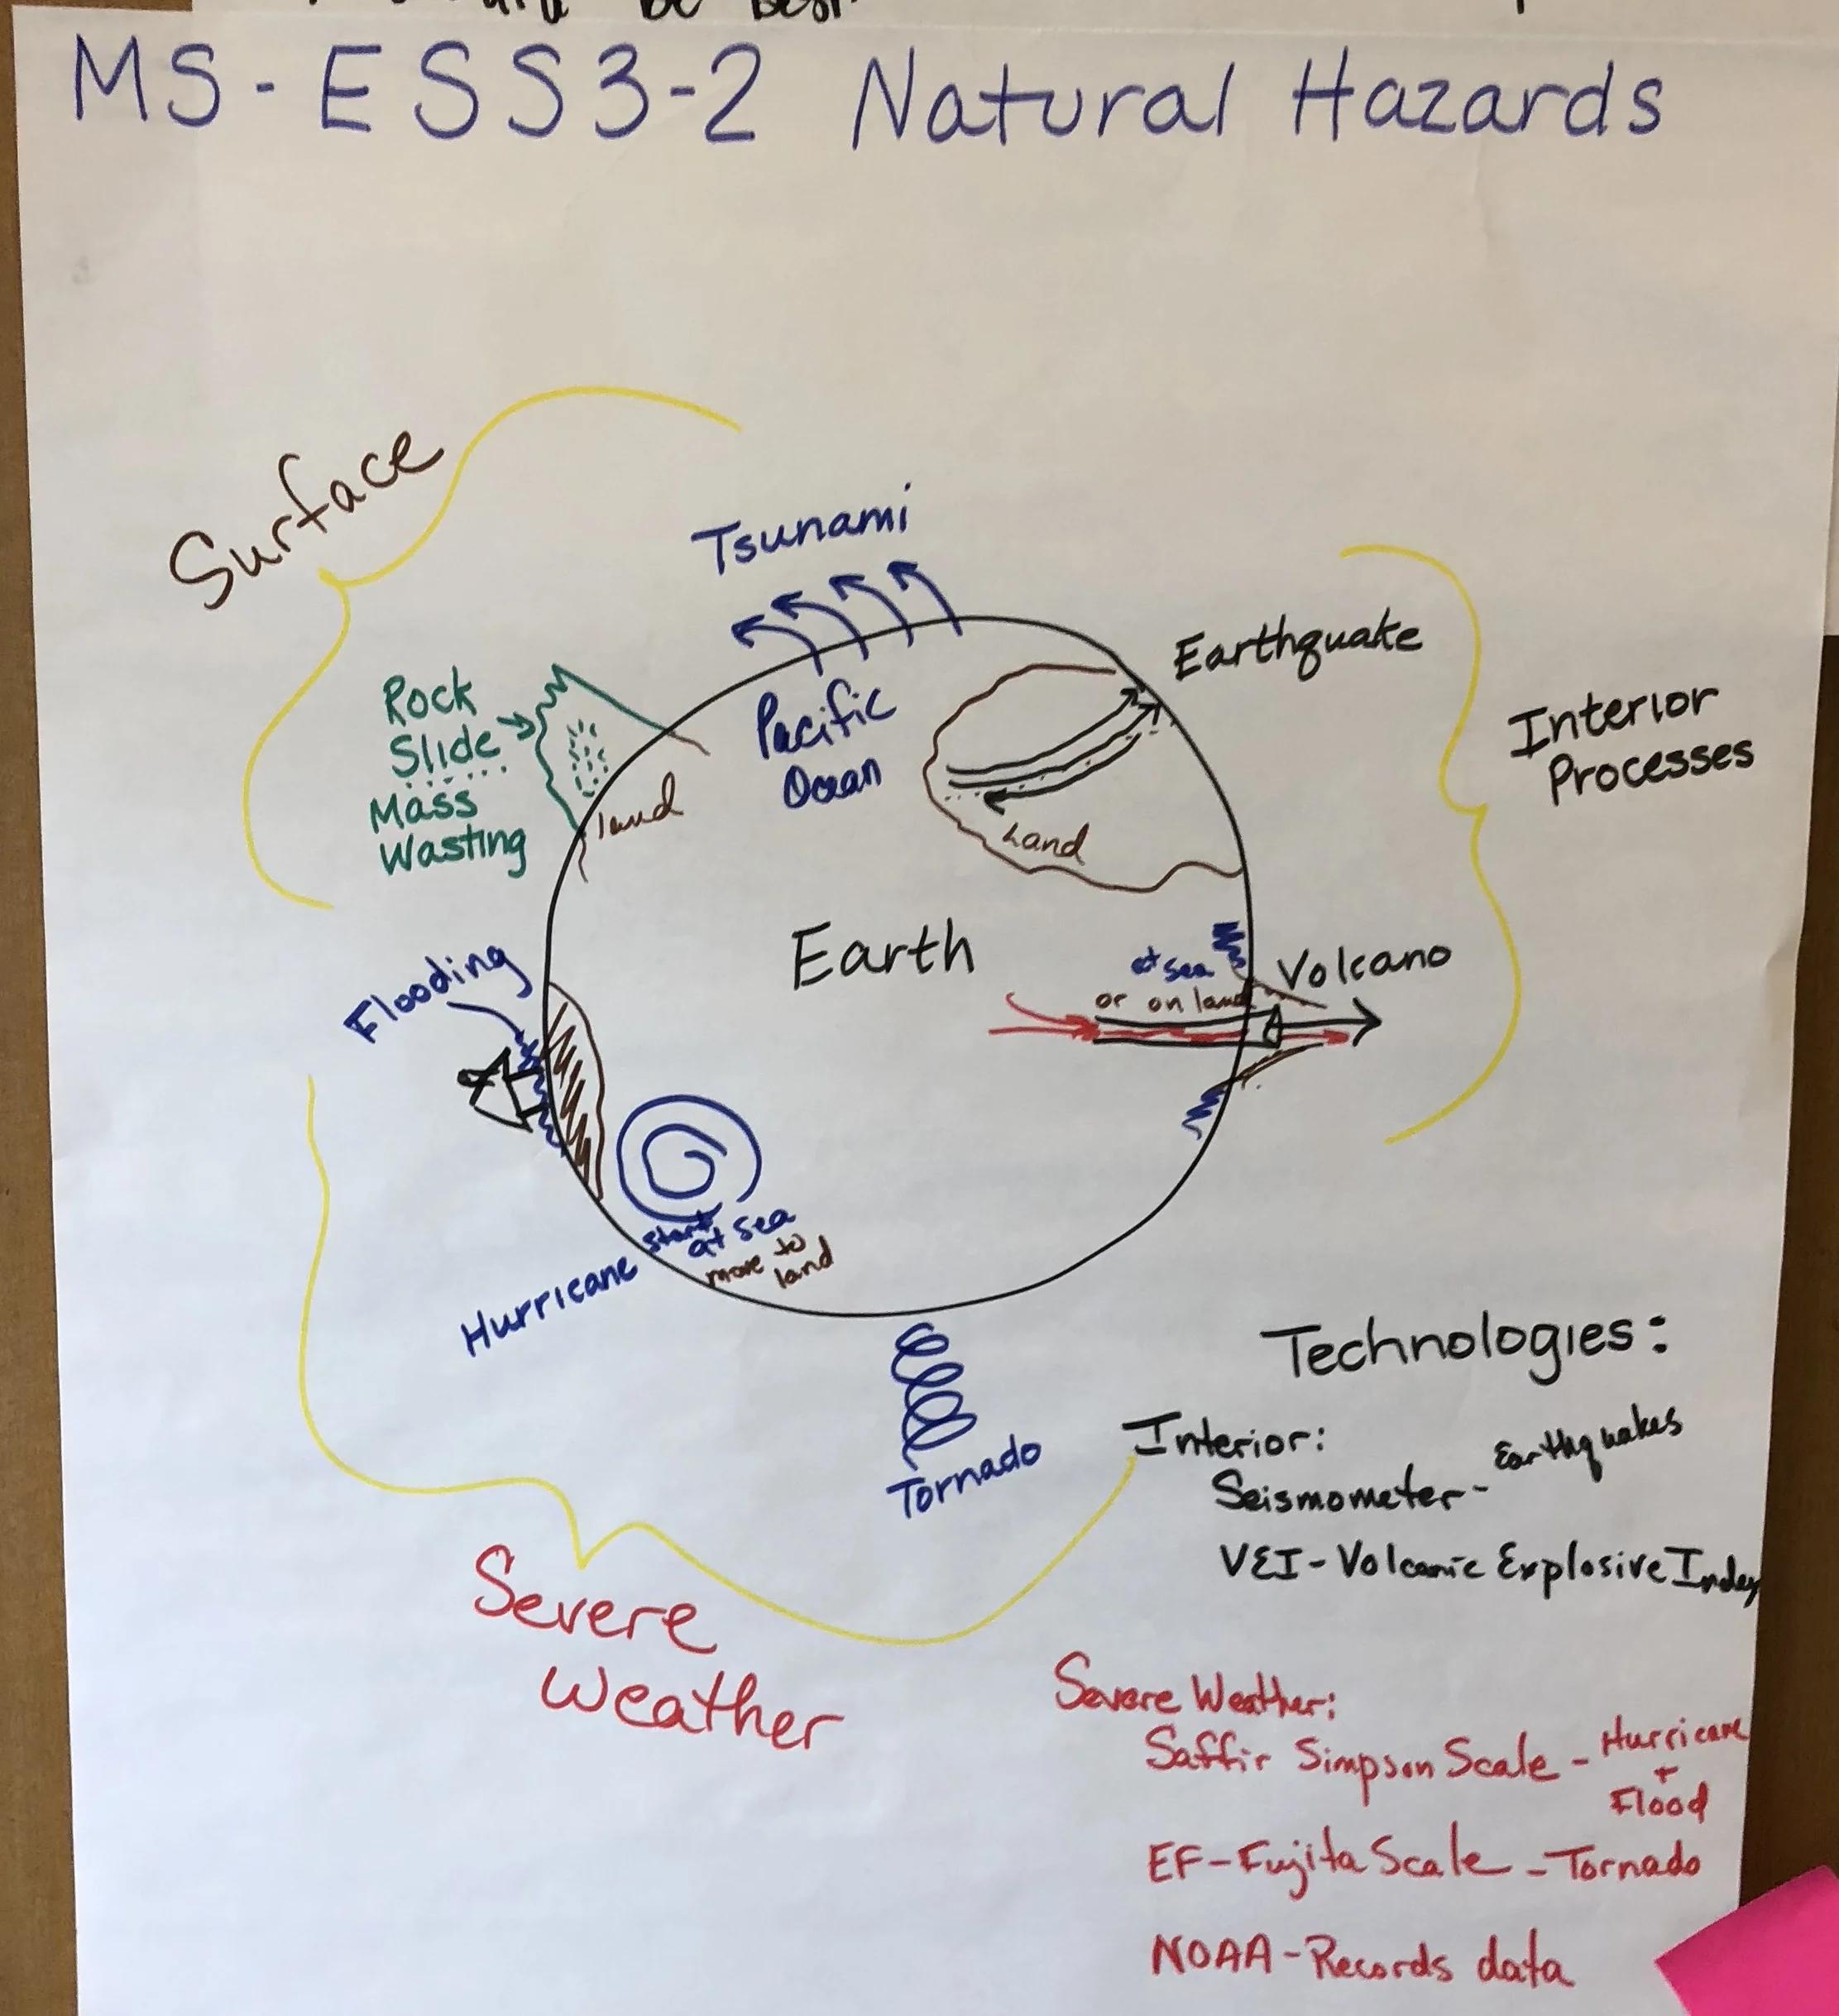 be best
MS-ESS3-2 Natural Hazards
Surface
Tsunami
Earthquake
Interior
Processes
Rock
Slide
Mass
Wasting
land
Pacific
Ocean
Land
Earth
at sea
or on land
Volcano
Flooding
Hurricane
start
at sea
move to
land
Tornado
Severe
Weather
Technologies:
Interior:
Seismometer - Earthquakes
VEI - Volcanic Explosive Index
Severe Weather:
Saffir Simpson Scale - Hurricane
+
Flood
EF-Fujita Scale - Tornado
NOAA - Records data